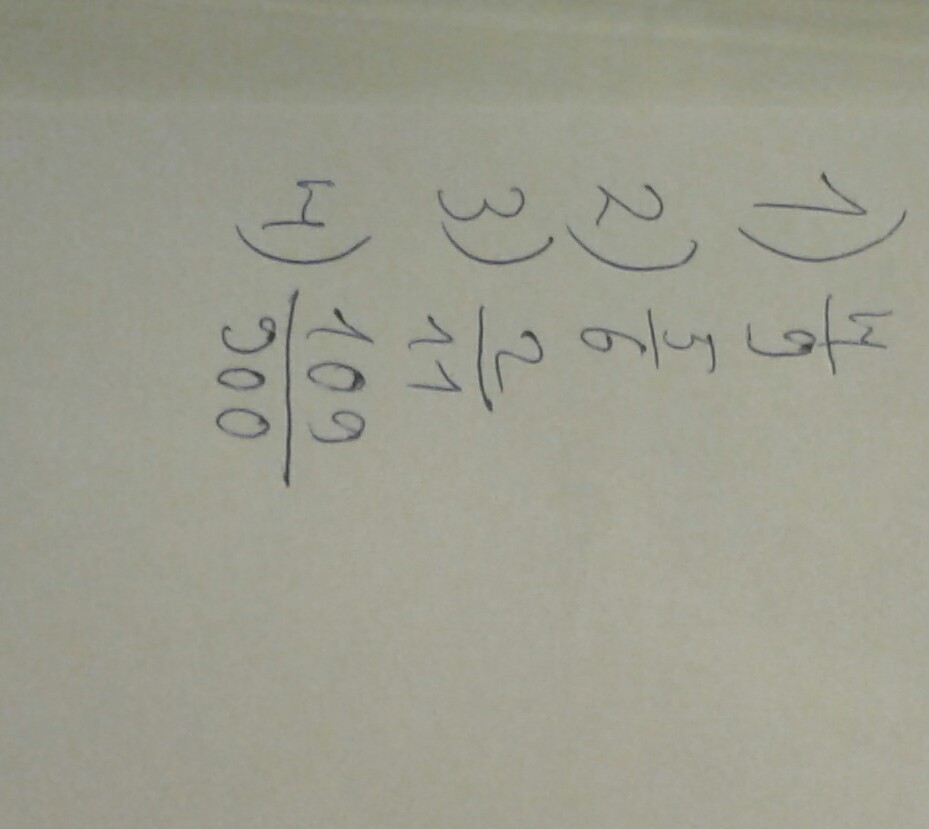 1) 4/9
2) 5/6
3) 2/11
4) 109/900